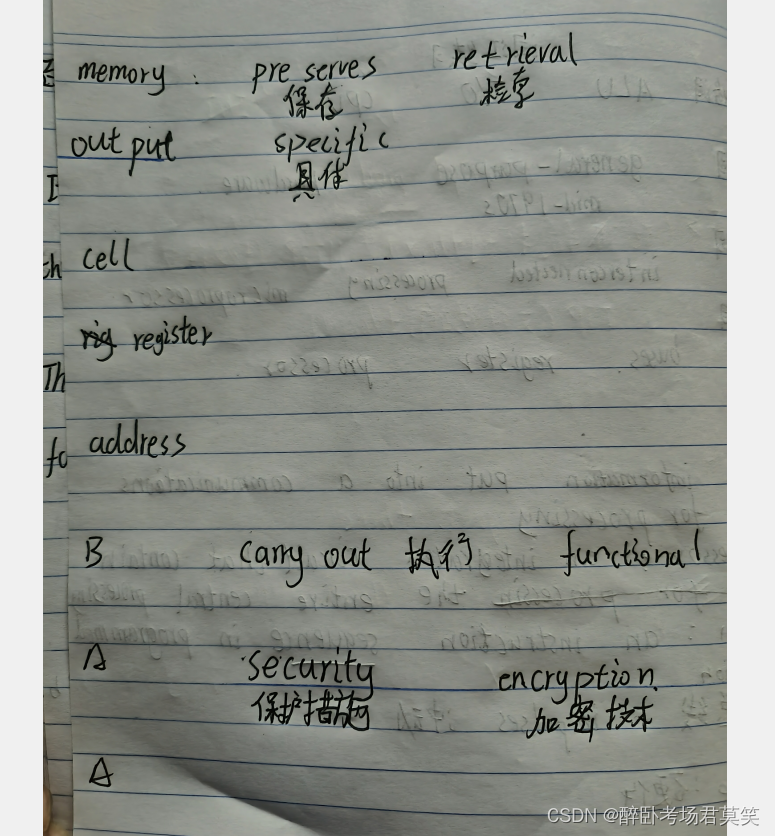 memory : preserves retrieval
保存 检索
output specific
具体
cell
register
address
B carry out 执行 functional
A security encryption.
保护措施 加密技术
A
CSDN @醉卧考场君莫笑